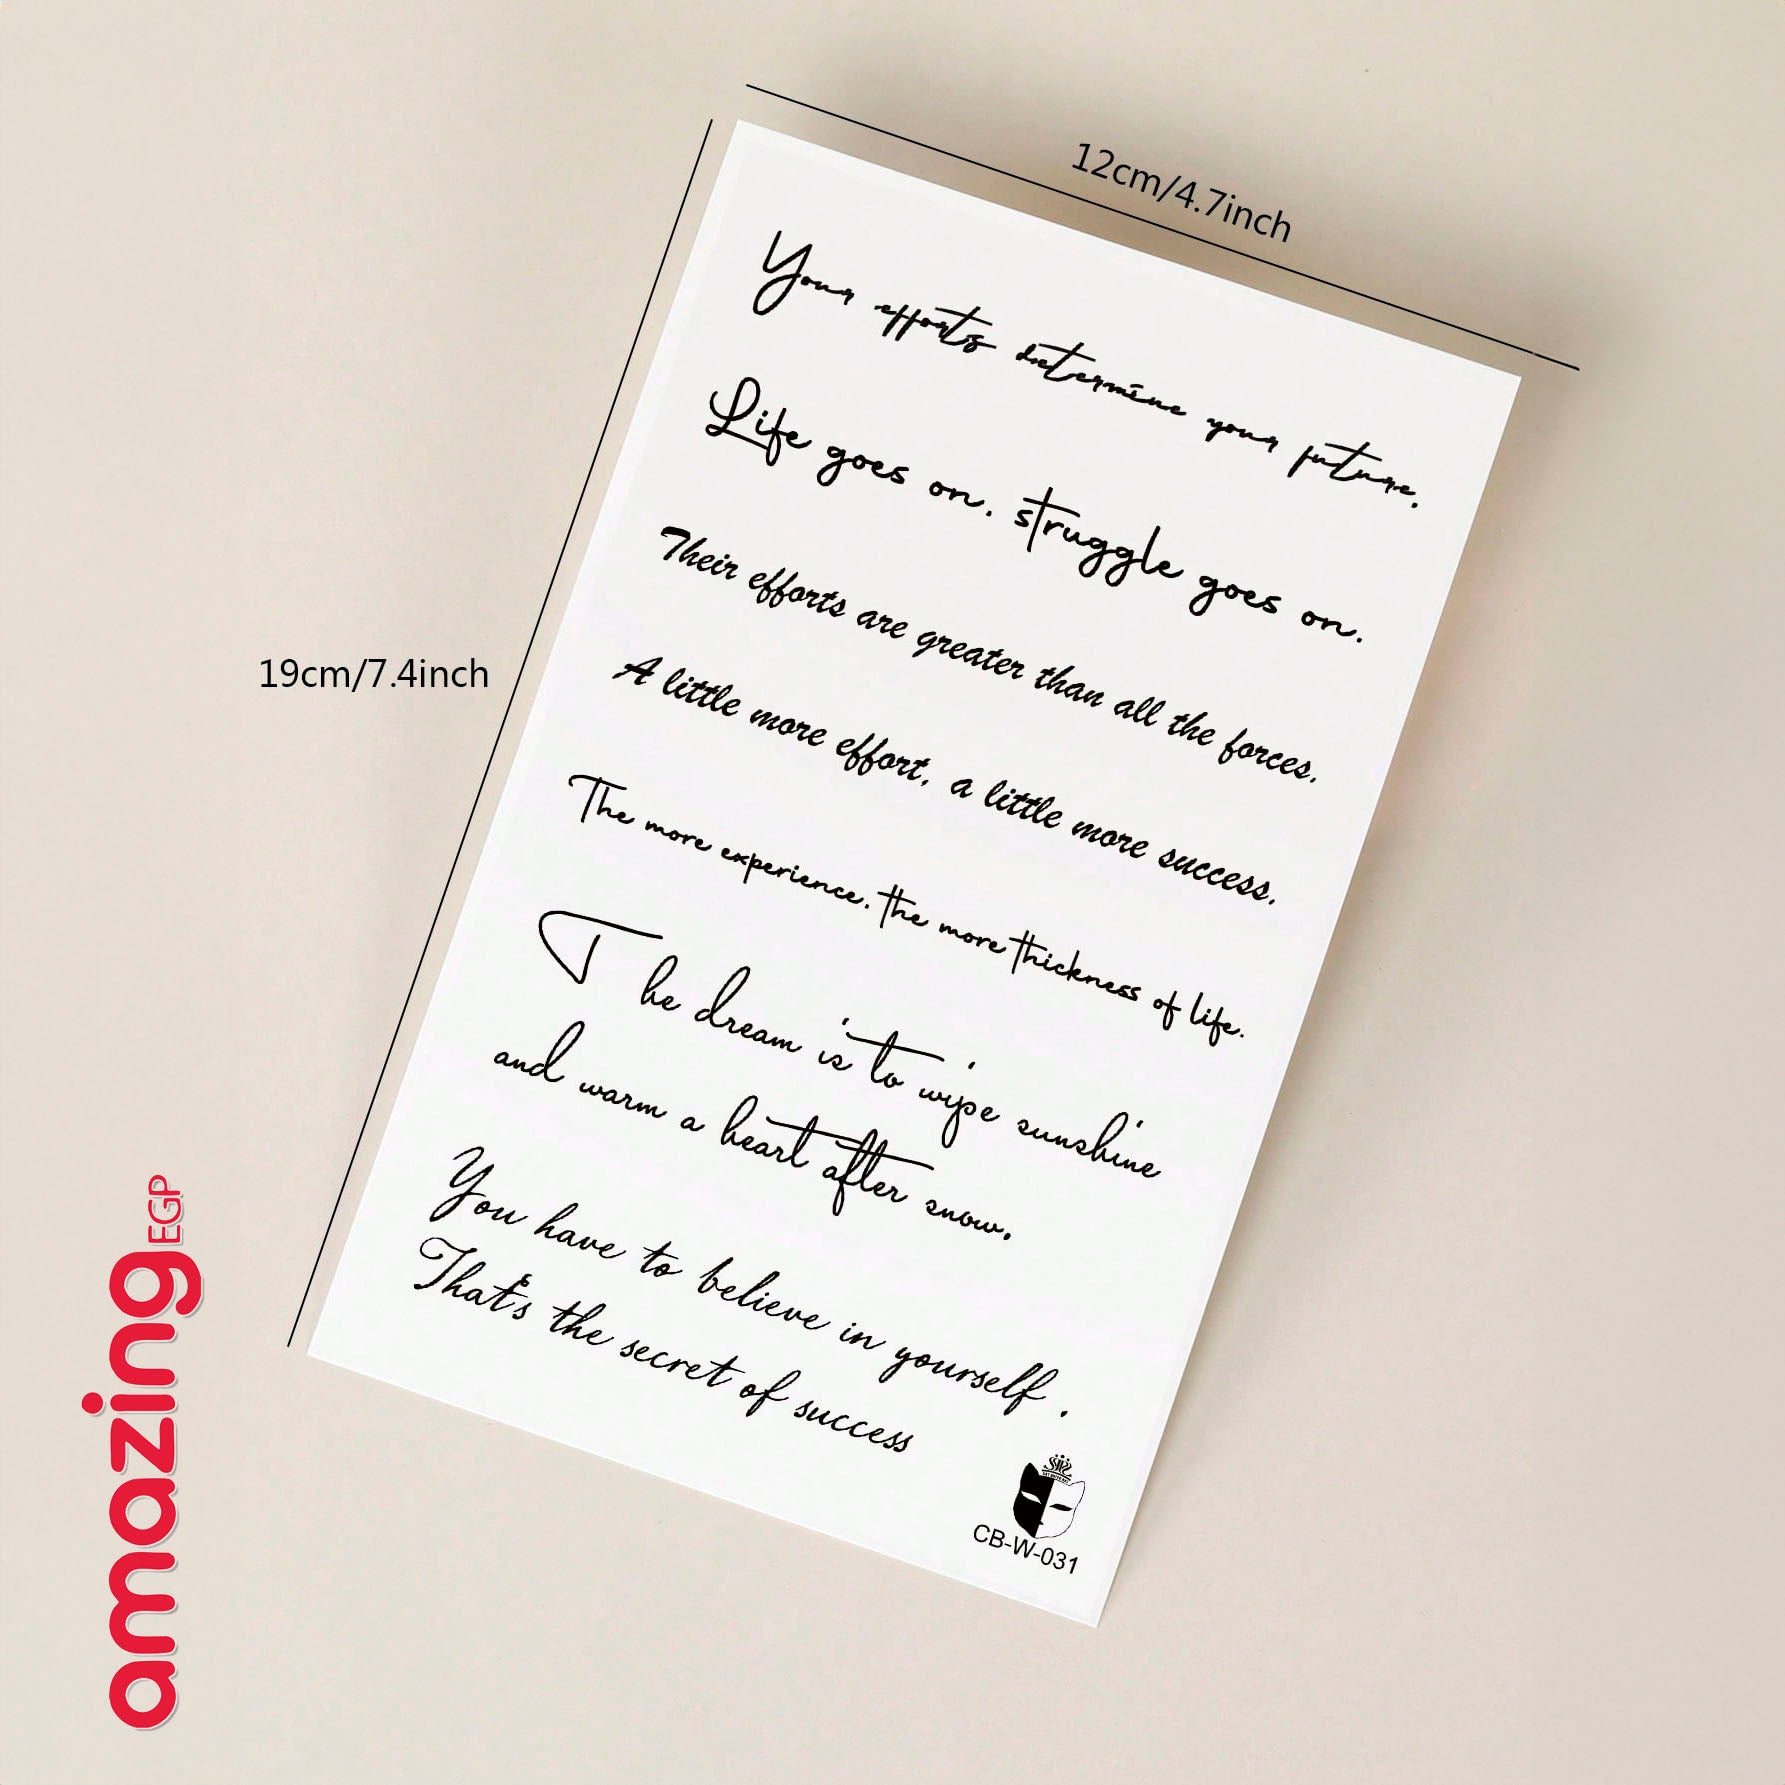 12cm/4.7inch
19cm/7.4inch
Your efforts determine your future.
Life goes on. struggle goes on.
Their efforts are greater than all the forces.
A little more effort, a little more success.
The more experience. the more thickness of life.
The dream is to wipe sunshine
and warm a heart after snow.
You have to believe in yourself .
That's the secret of success
CB-W-031
amazing EGP